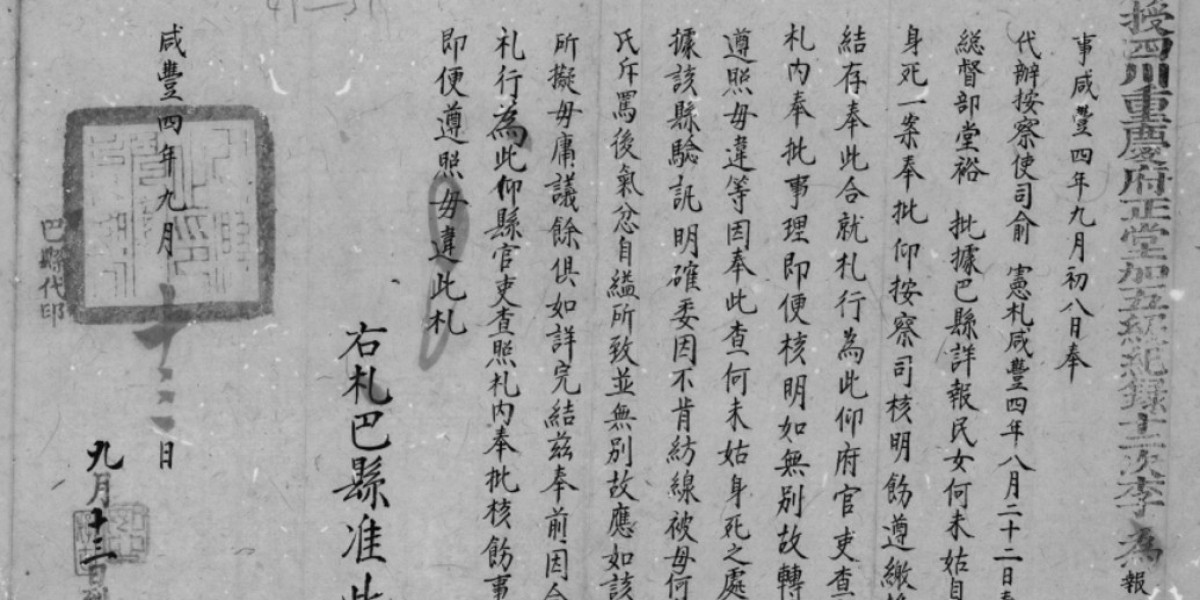 授四川重慶府正堂加五級紀錄十二次李 為
報
事咸豐四年九月初八日奉
代辦按察使司俞 憲札咸豐四年八月二十二日奉
總督部堂裕 批據巴縣詳報民女何未姑自
身死一案奉批仰按察司核明飭遵繳
結存奉此合就札行為此仰府官吏查
札內奉批事理即便核明如無別故轉
遵照毋違等因奉此查何未姑身死之處
據該縣驗訊明確委因不肯紡線被母何
氏斥罵後氣忿自縊所致並無別故應如該
所擬毋庸議餘俱如詳完結茲奉前因合
札行為此仰縣官吏查照札內奉批核飭事
即便遵照毋違此札
右札巴縣准此
咸豐四年九月十二日
巴縣代印
九月十三日到